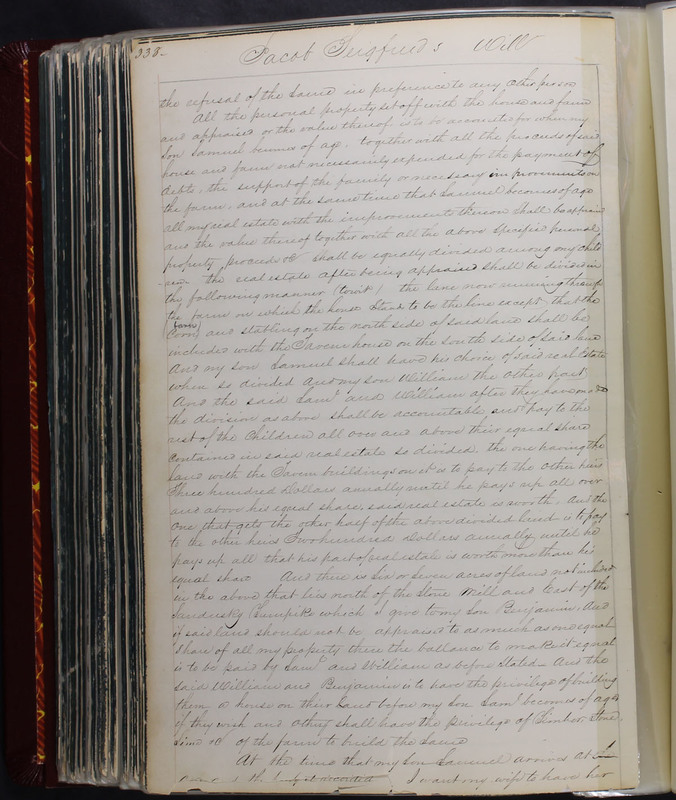 338-
Jacob Seigfried's Will
the refusal of the same in preference to any other person
All the personal property set off with the house and farm
and appraised or the value thereof is to be accounted for when my
Son Samuel becomes of age, together with all the proceeds of said
house and farm not necessarily expended for the payment of
debts, the support of the family or necessary improvements on
the farm, and at the same time that Samuel becomes of age
all my real estate with the improvements thereon shall be appraised
and the value thereof together with all the above specified personal
property, proceeds &c shall be equally divided among my child
ren. the real estate after being appraised shall be divided in
the following manner (towit) the lane now running through
the farm on which the house Stands to be the line except that the
(barn)
Corn and stabling on the north side of said land shall be
included with the Tavern house on the south side of said lane
And my son Samuel shall have his choice of said real Estate
when so divided and my son William the other part.
And the said Saml and William after they have made
the division as above shall be accountable and pay to the
rest of the Children all over and above their equal share
contained in said real estate so divided, the one having the
land with the Tavern buildings on it is to pay to the other heirs
Three hundred Dollars annually until he pays up all over
and above his equal share, said real estate is worth, and the
One that gets the other half of the above divided land is to pay
to the other heirs Two hundred Dollars annually until he
pays up all that his part of real estate is worth more than his
equal share And there is Six or Seven acres of land not included
in the above that lies north of the Stone Mill and East of the
Sandusky Turnpike which I give to my son Benjamin, And
if said land should not be appraised to as much as one equal
Share of all my property then the ballance to make it equal
is to be paid by Saml and William as before Stated - And the
said William and Benjamin is to have the privilege of building
them a house on their Land before my son Saml becomes of age
if they wish and they shall have the privilege of Timber, Stone,
Lime &c of the farm to build the Same
At the time that my Son Samuel arrives at
I want my wife to have her